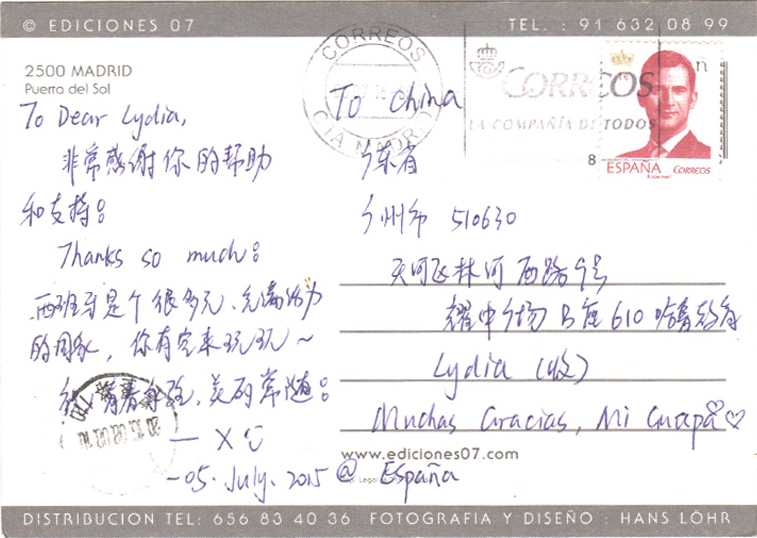 © EDICIONES 07
TEL. : 91 632 08 99
2500 MADRID
Puerta del Sol
CORREOS
CTA MADRID
CORREOS
LA COMPAÑÍA DE TODOS
ESPAÑA CORREOS
To Dear Lydia,
非常感谢你的帮助
和支持!
Thanks so much!
西班牙是个很多元、充满活力
的国家,你有空来玩玩~
青春永驻、美丽常随!
— X
-05. July. 2015 @ España
To China
广东省
广州市 510630
天河区林河西路9号
耀中广场 B座 610
Lydia (收)
Muchas Gracias, Mi Guapa ♡♡
www.ediciones07.com
DISTRIBUCION TEL: 656 83 40 36 FOTOGRAFIA Y DISEÑO : HANS LÖHR